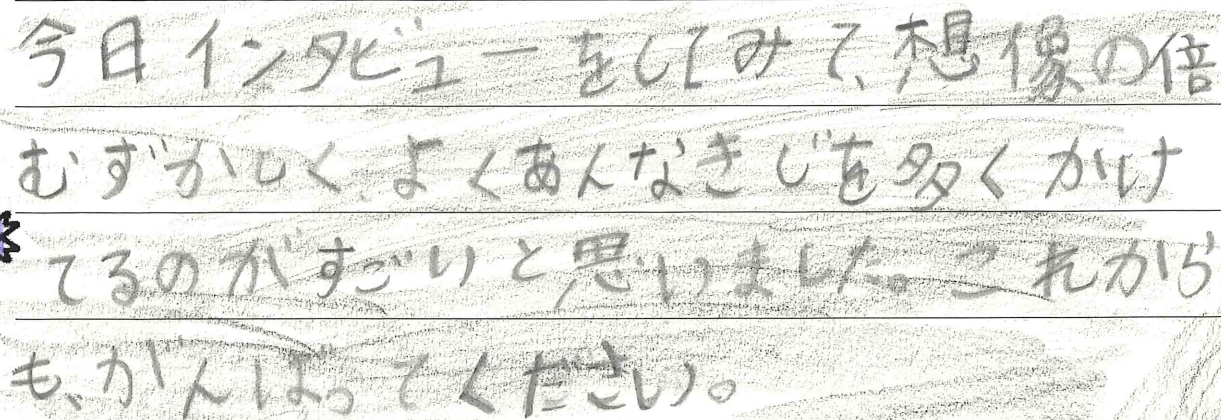 今日インタビューをしてみて、想像の倍
むずかしく、よくあんなきじを多くかけ
てるのがすごいと思いました。これから
も、がんばってください。